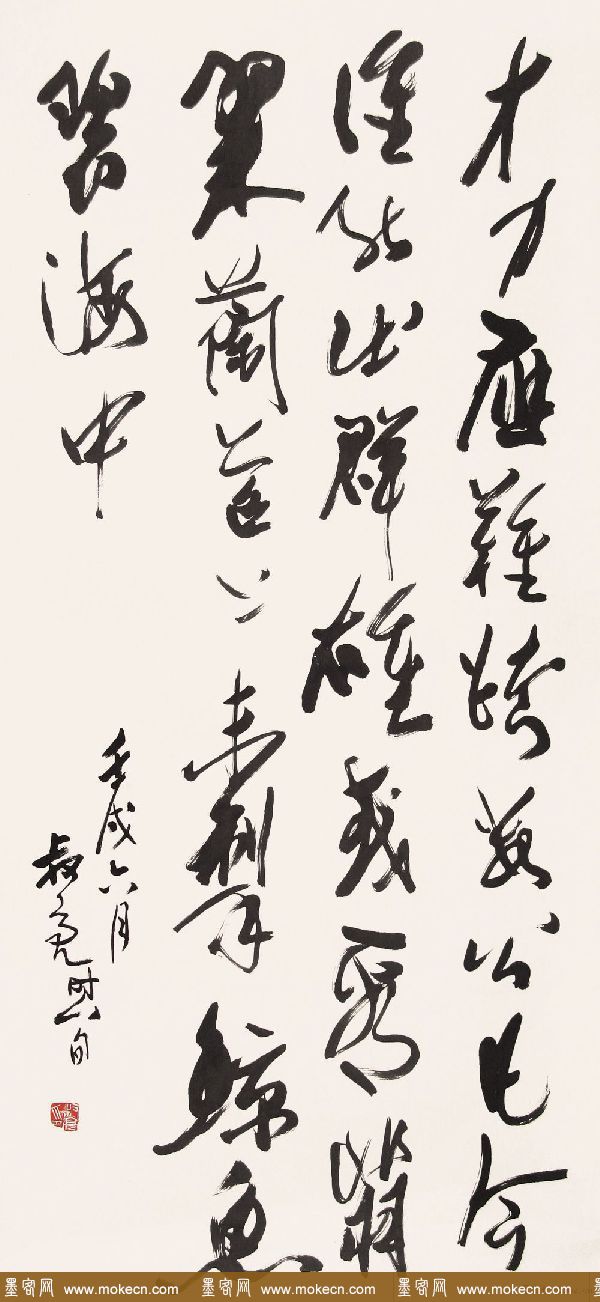 才力應難跨數公凡今
誰能出群雄或看翡
翠蘭苕上未掣鯨魚
碧海中
壬戌六月
叔亮時八旬
墨客网 www.mokecn.com 墨客网 www.mokecn.com 墨客网 www.mokecn.com